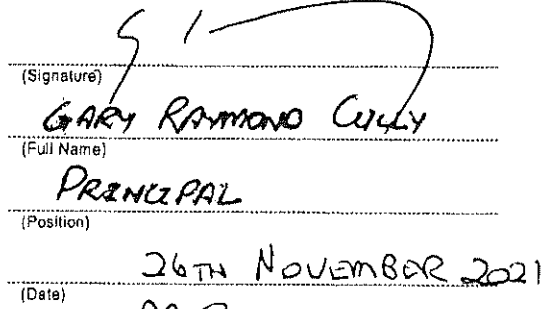 (Signature)
GARY RAYMOND CULLY
(Full Name)
PRINCIPAL
(Position)
26TH NOVEMBER 2021
(Date)